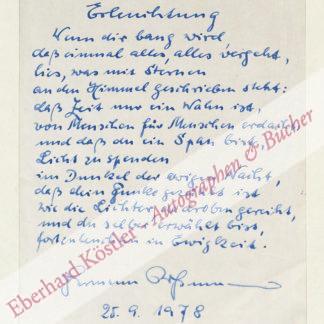 Erleuchtung
Wenn dir bang wird
daß einmal alles, alles vergeht,
lies, was mit Sternen
an den Himmel geschrieben steht:
daß Zeit nur ein Wahn ist,
von Menschen für Menschen erdacht
und daß du ein Span bist,
Licht zu spenden
im Dunkel der ewigen Nacht,
daß dein Funke gezählt ist
wie die Lichter da droben gereiht,
und du selber erwählt bist,
fortzuleuchten in Ewigkeit.
Hermann
25. 9. 1978
Eberhard Köstler Autographen & Bücher